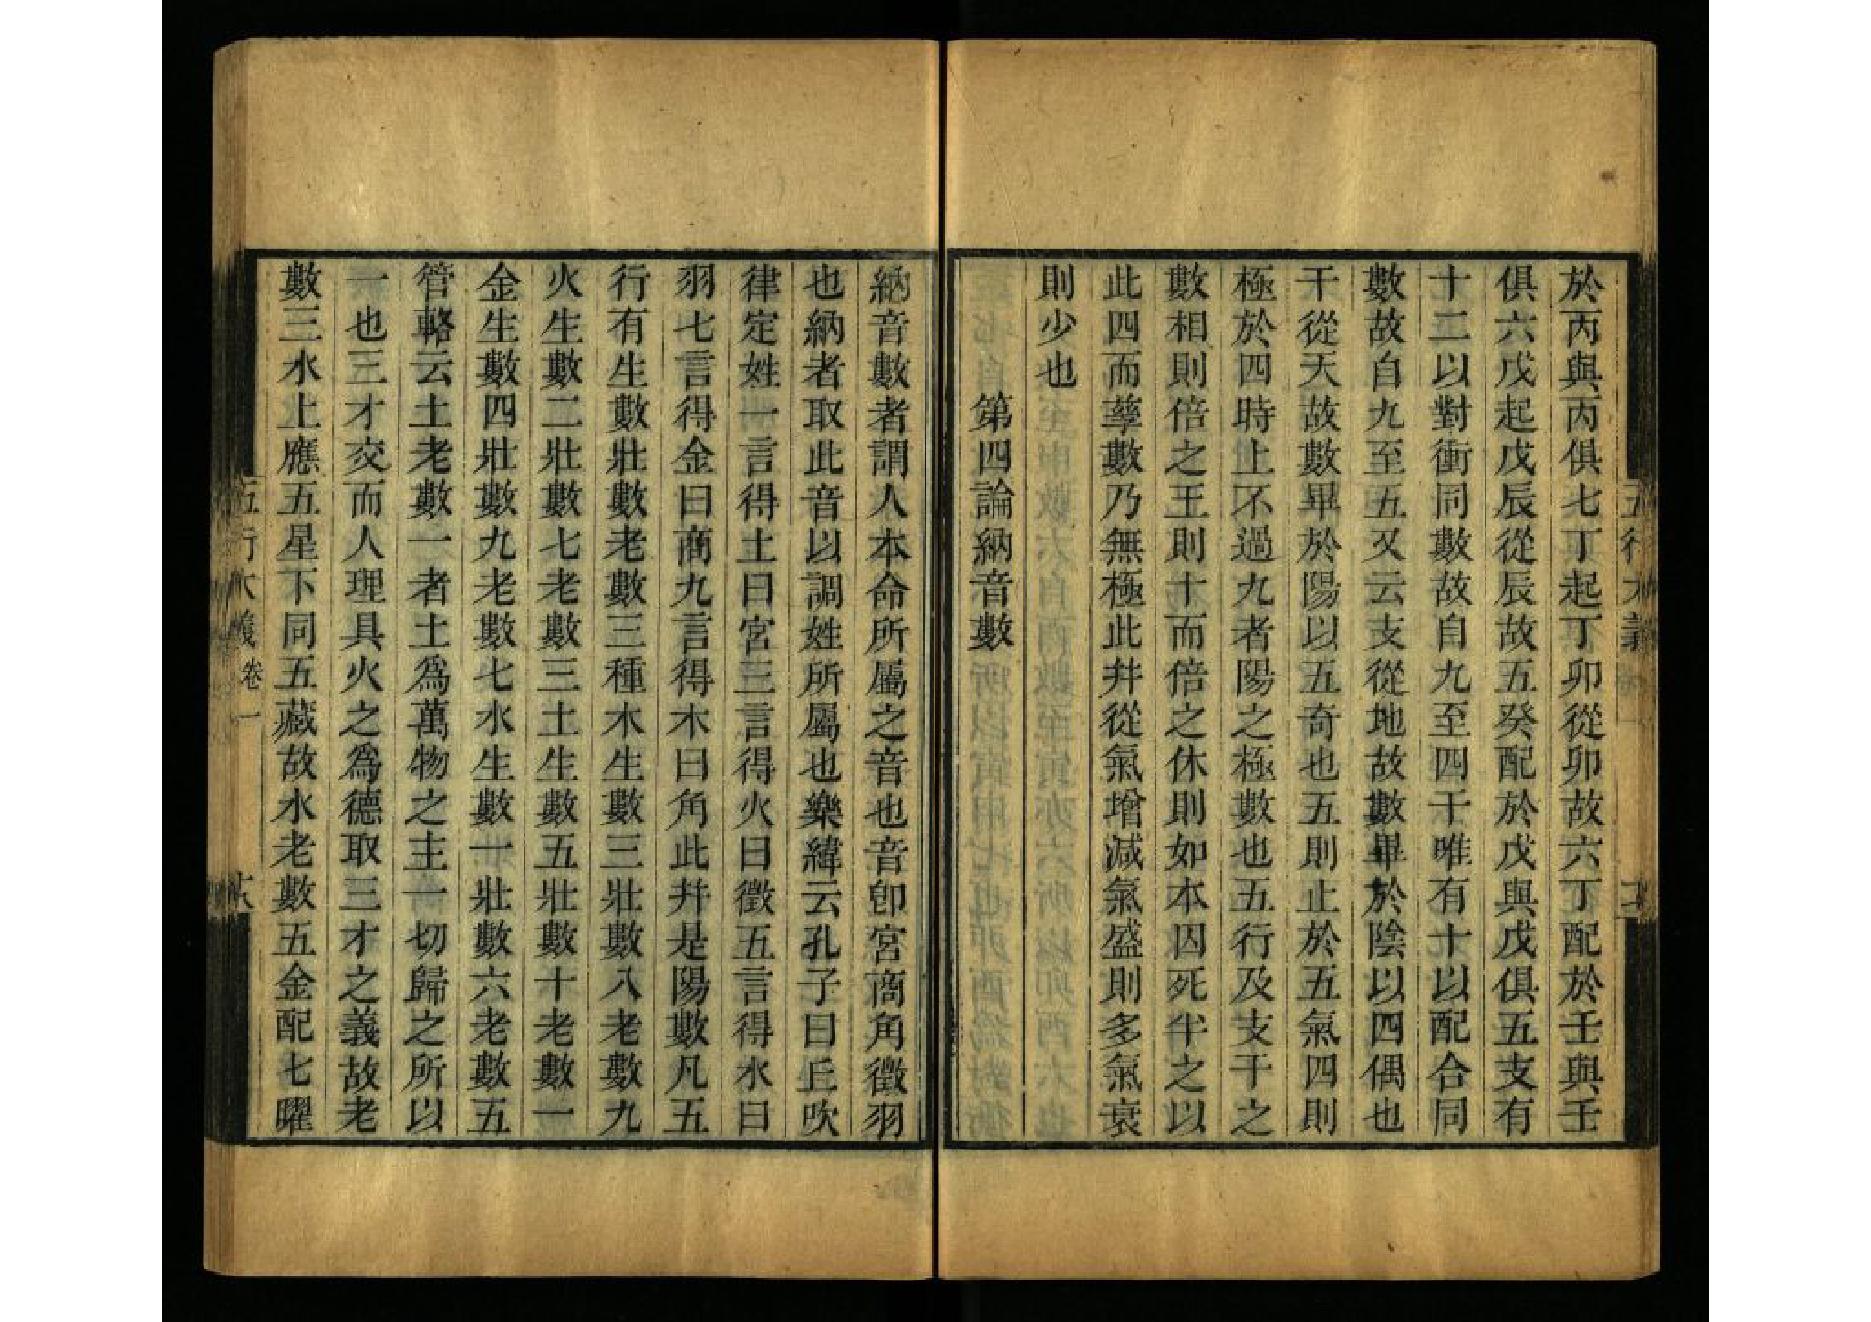 於丙與丙俱七丁起丁卯從卯故六丁配於壬與壬
俱六戊起戊辰從辰故五癸配於戊與戊俱五支有
十二以對衝同數故自九至四于唯有十以配合同
數故自九至五又云支從地故數畢於陰以四偶也
干從天故數畢於陽以五奇也五則止於五氣四則
極於四時止不過九者陽之極數也五行及支干之
數相則倍之王則十而倍之休則如本囚死半之以
此四而孳數乃無極此并從氣增減氣盛則多氣衰
則少也
第四論納音數
納音數者謂人本命所屬之音也音卽宮商角徵羽
也納者取此音以調姓所屬也樂緯云孔子曰丘吹
律定姓一言得土曰宮三言得火曰徵五言得水曰
羽七言得金曰商九言得木曰角此并是陽數凡五
行有生數壯數老數三種木生數三壯數八老數九
火生數二壯數七老數三土生數五壯數十老數一
金生數四壯數九老數七水生數一壯數六老數五
管輅云土老數一者土爲萬物之主一切歸之所以
一也三才交而人理具火之爲德取三才之義故老
數三水上應五星下同五藏故水老數五金配七曜
五行大義卷一